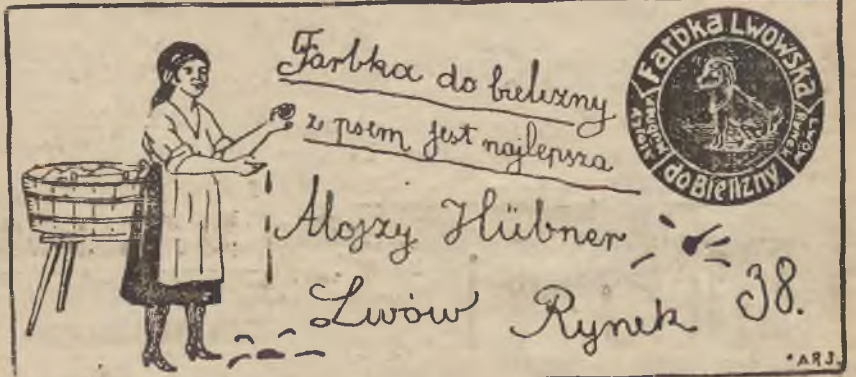 Farbka do bielizny
z psem jest najlepsza
Alojzy Hübner
Lwów Rynek 38.
Farbka Lwowska
Lwów
Rynek
do Bielizny
Alojzy
Hübner
*ARS.